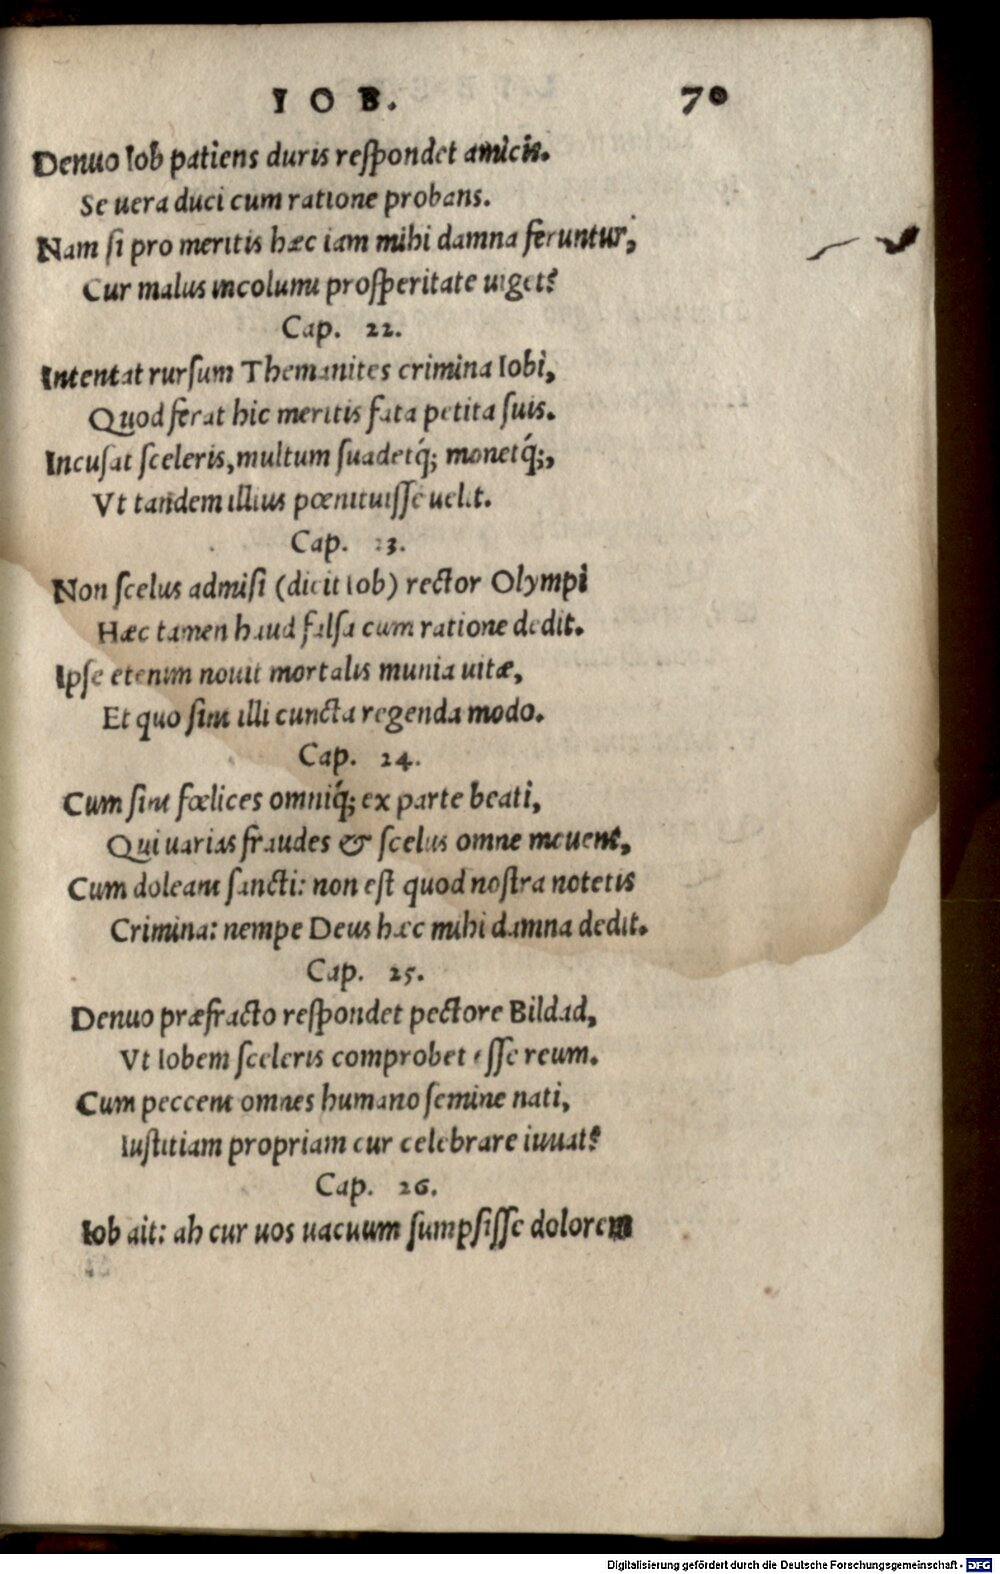 IOB. 70
Denuo Iob patiens duris reſpondet amicis.
Se uera duci cum ratione probans.
Nam ſi pro meritis hæc iam mihi damna feruntur,
Cur malus incolumi proſperitate uiget?
Cap. 22.
Intentat rurſum Themanites crimina Iobi,
Quod ferat hic meritis fata petita ſuis.
Incuſat ſceleris, multum ſuadetq́; monetq́;,
Vt tandem illius pœnituiſſe uelit.
Cap. 23.
Non ſcelus admiſi (dicit Iob) rector Olympi
Hæc tamen haud falſa cum ratione dedit.
Ipſe etenim nouit mortalis munia uitæ,
Et quo ſint illi cuncta regenda modo.
Cap. 24.
Cum ſint fœlices omniq́; ex parte beati,
Qui uarias fraudes & ſcelus omne mouent,
Cum doleant ſancti: non eſt quod noſtra notetis
Crimina: nempe Deus hæc mihi damna dedit.
Cap. 25.
Denuo præfracto reſpondet pectore Bildad,
Vt Iobem ſceleris comprobet eſſe reum.
Cum peccent omnes humano ſemine nati,
Iuſtitiam propriam cur celebrare iuuat?
Cap. 26.
Iob ait: ah cur uos uacuum ſumpſiſſe dolorem
Digitalisierung gefördert durch die Deutsche Forschungsgemeinschaft - DFG